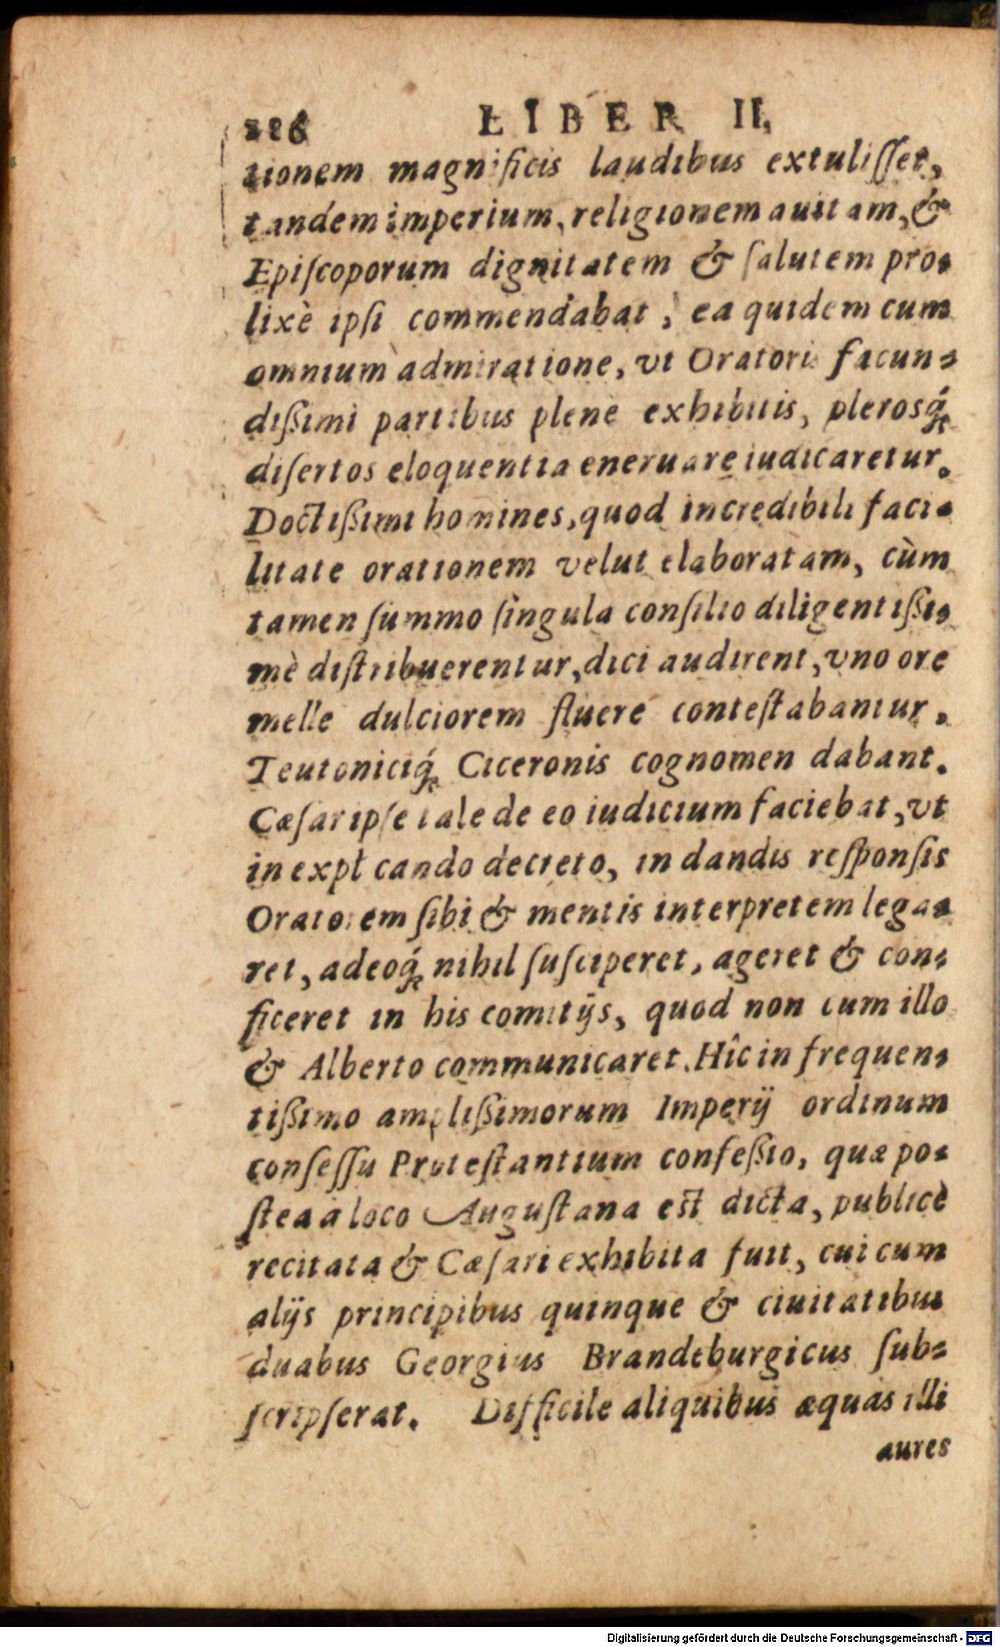 226 LIBER II.
tionem magnificis laudibus extulisset,
tandem imperium, religionem auitam, &
Episcoporum dignitatem & salutem pro-
lixè ipsi commendabat, ea quidem cum
omnium admiratione, vt Oratoris facun-
dißimi partibus plenè exhibitis, plerosq́;
disertos eloquentia eneruare iudicaretur.
Doctißimi homines, quod incredibili faci-
litate orationem velut elaboratam, cùm
tamen summo singula consilio diligentißi-
mè distribuerentur, dici audirent, vno ore
melle dulciorem fluere contestabantur,
Teutoniciq́; Ciceronis cognomen dabant.
Cæsar ipse tale de eo iudicium faciebat, vt
in explicando decreto, in dandis responsis
Oratorem sibi & mentis interpretem lega-
ret, adeoq́; nihil susciperet, ageret & con-
ficeret in his comitijs, quod non cum illo
& Alberto communicaret. Hîc in frequen-
tißimo amplißimorum Imperij ordinum
consessu Protestantium confeßio, quæ po-
stea a loco Augustana est dicta, publicè
recitata & Cæsari exhibita fuit, cui cum
alijs principibus quinque & ciuitatibus
duabus Georgius Brandeburgicus sub-
scripserat. Difficile aliquibus æquas illi
aures
Digitalisierung gefördert durch die Deutsche Forschungsgemeinschaft - DFG